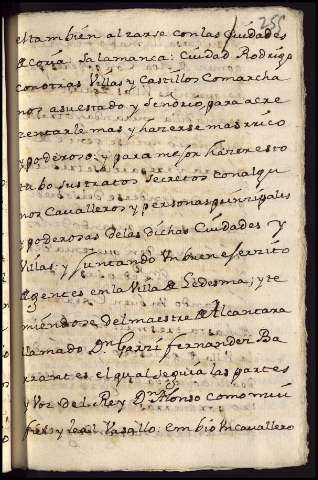 255
el tambien alzarse con las Ciudades
de Coria Salamanca: Ciudad Rodrigo
con otras Villas y Castillos Comarcha
nos a su estado y Señorio, para acre
zentarle mas y házerse mas rrico
y poderoso; y para mejor házer esto
tubo sus tratos Secretos con algu
nos Cavalleros y personas prinzipales
y poderosas de las dichas Ciudades y
Villas; y Juntando Un buen eserzito
de gentes en la Villa de Ledesma; y te
miendose del maestre de Alcantara
llamado Dn Garzi fernandez Ba
rrantes el qual seguia las partes
y Voz del Rey Dn Alonso como mui
fiel y leal Vasallo: embio Un cavallero